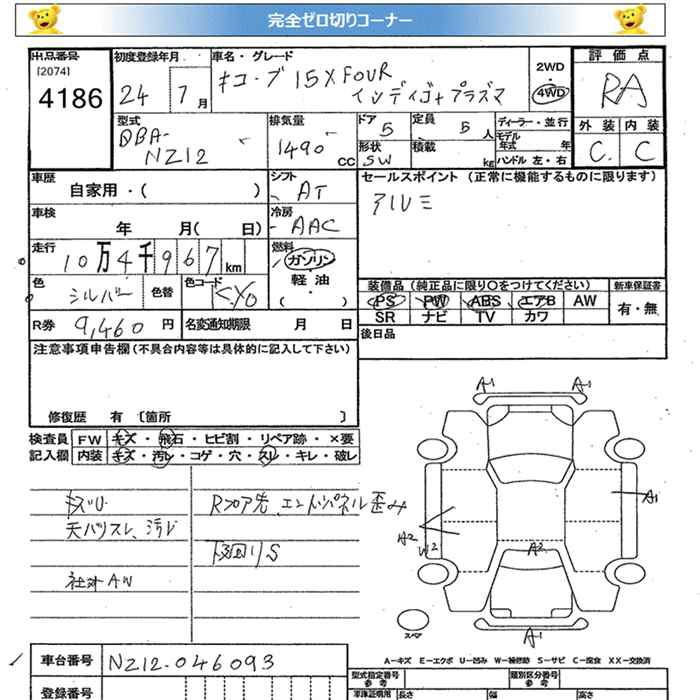 完全ゼロ切りコーナー
出品番号
[2074]
4186
初度登録年月
24 7月
車名・グレード
キューブ 15X FOUR
インディゴ+プラズマ
2WD
4WD
評価点
RA
外装 内装
C. C
型式
DBA-
NZ12
排気量
1490 CC
ドア 5
形状 SW
定員 5 人
積載 kg
ディーラー・並行
モデル
年式 年
ハンドル 左・右
車歴
自家用・( )
シフト
AT
セールスポイント (正常に機能するものに限ります)
アルミ
車検
年 月( 日)
冷房
AAC
走行
10万4千967km
燃料
ガソリン
軽油
・( )
色
シルバー
色替
色コード
KY0
装備品 (純正品に限り〇をつけてください)
PS PW ABS エアB AW
SR ナビ TV カワ
新車保証書
有・無
R券 9,460 円
名変通知期限 月 日
後日品
注意事項申告欄 (不具合内容等は具体的に記入して下さい)
修復歴 有 〔箇所 〕
検査員 FW キズ・飛石・ヒビ割・リペア跡・×要
記入欄 内装 キズ・汚レ・コゲ・穴・スレ・キレ・破レ
天バリスレ、汚レ
社外AW
Rフロア先、エンドパネル歪み
下回りS
A1 A1
A1
A2
W2
A2
A1
スペア
A-キズ E-エクボ U-凹み W-補修跡 S-サビ C-腐食 XX-交換済
車台番号 NZ12-046093
登録番号
型式指定番号
参考
類別区分番号
参考
車庫証明用
長さ 幅 高さ